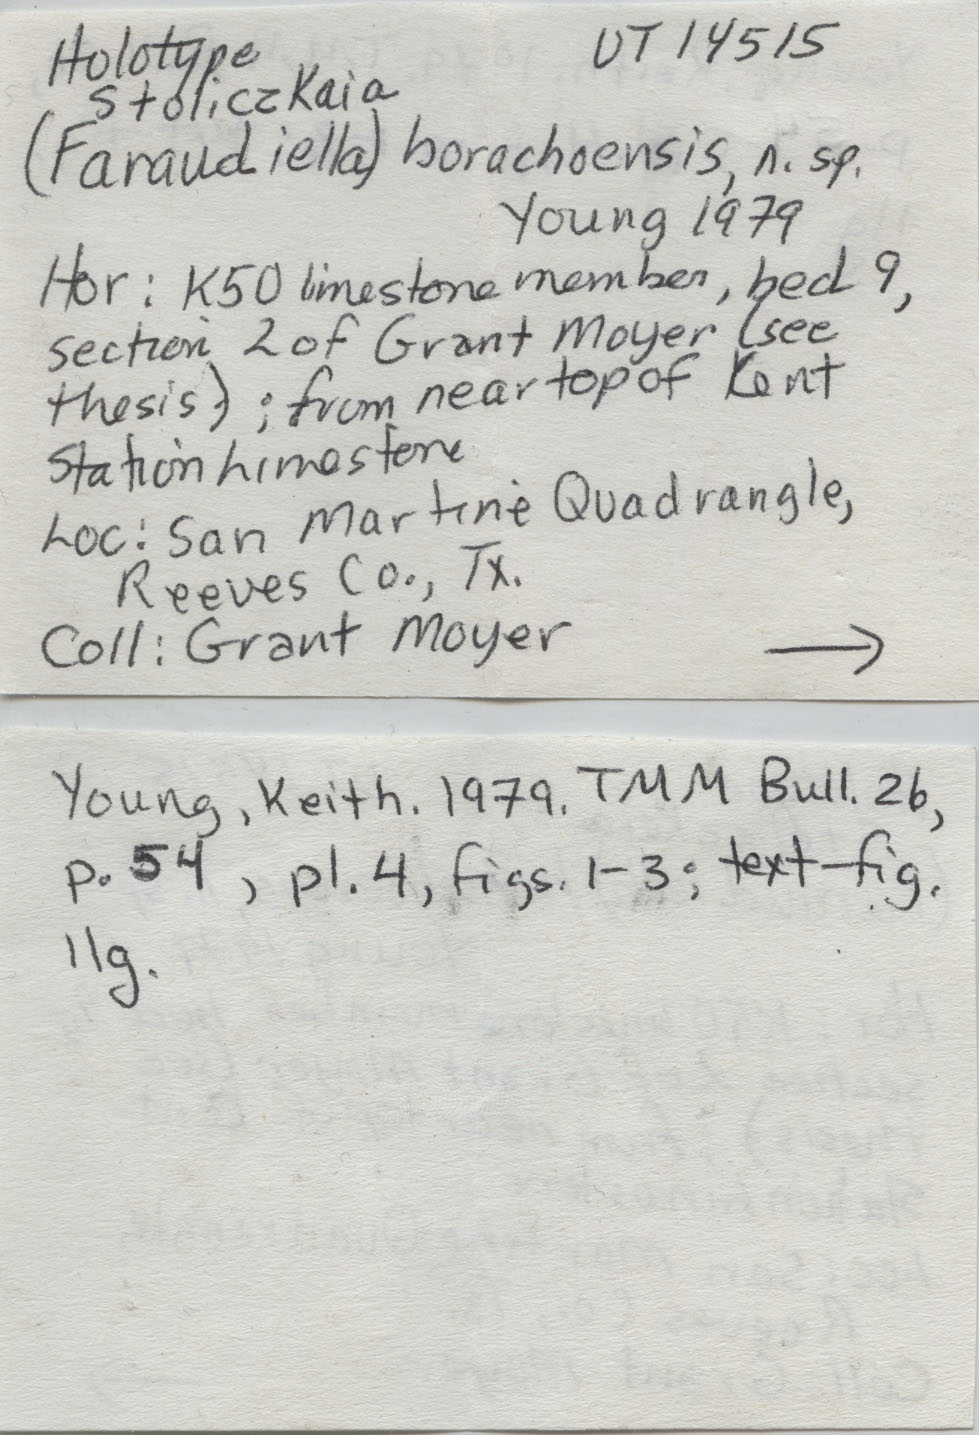 Holotype UT 14515
Stoliczkaia
(Faraudiella) borachoensis, n. sp.
Young 1979
Hor: K50 limestone member, bed 9,
section 2 of Grant Moyer (see
thesis); from near top of Kent
Station Limestone
Loc: San Martine Quadrangle,
Reeves Co., Tx.
Coll: Grant Moyer →
Young, Keith. 1979. TMM Bull. 26,
p. 54, pl. 4, figs. 1-3; text-fig.
11g.